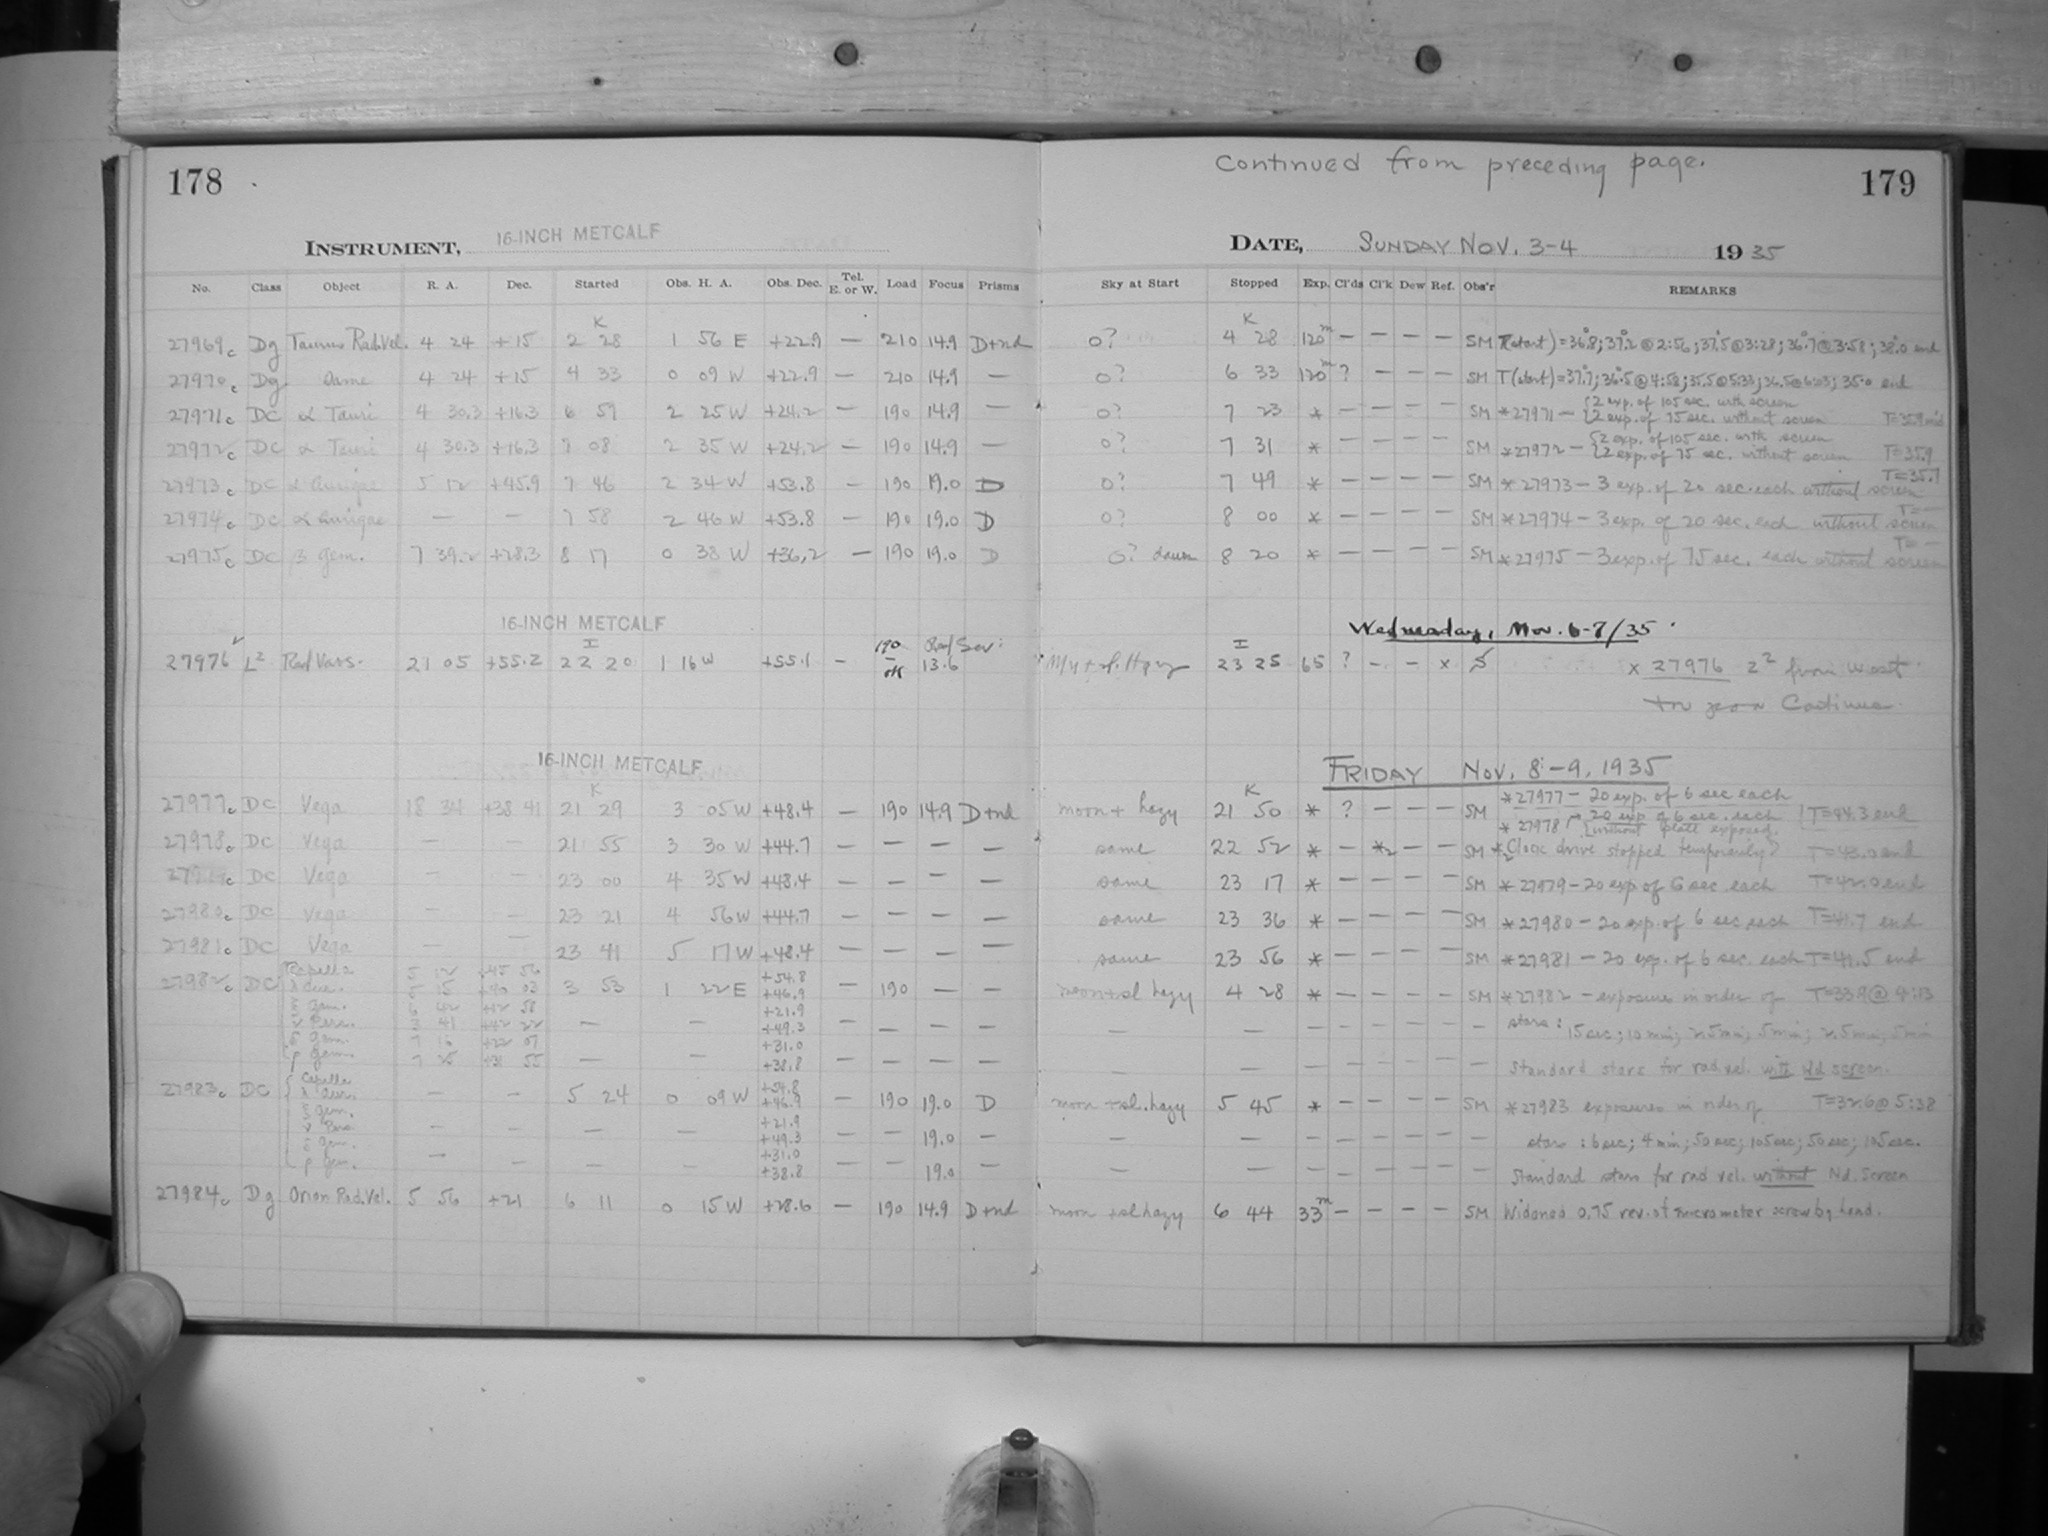 178
INSTRUMENT, 16-INCH METCALF
No. Class Object R. A. Dec. Started Obs. H. A. Obs. Dec. Tel. E. or W. Load Focus Prisms
K
27969c Dg Taurus Rad.Vel. 4 24 +15 2 28 1 56 E +22.9 — 210 14.9 D+nd
27970c Dg Same 4 24 +15 4 33 0 09 W +22.9 — 210 14.9 —
27971c DC α Tauri 4 30.3 +16.3 6 59 2 25 W +24.2 — 190 14.9 —
27972c DC α Tauri 4 30.3 +16.3 7 08 2 35 W +24.2 — 190 14.9 —
27973c DC α Aurigae 5 12 +45.9 7 46 2 34 W +53.8 — 190 19.0 D
27974c DC α Aurigae — — 7 58 2 46 W +53.8 — 190 19.0 D
27975c DC β Gem. 7 39.2 +28.3 8 17 0 38 W +36.2 — 190 19.0 D
16-INCH METCALF
27976 L2 Rad Vars. 21 05 +55.2 22 20 1 16 W +55.1 — 190 13.6
16-INCH METCALF
K
27977c DC Vega 18 34 +38 41 21 29 3 05 W +48.4 — 190 14.9 D+nd
27978c DC Vega — — 21 55 3 30 W +44.7 — — — —
c DC Vega — — 23 00 4 35 W +48.4 — — — —
27980c DC Vega — — 23 21 4 56 W +44.7 — — — —
27981c DC Vega — — 23 41 5 17 W +48.4 — — — —
Capella 5 12 +45 56 +54.8
27982c DC λ Aur. 5 15 +40 03 3 53 1 22 E +46.9 — 190 — —
ξ Gem. +21.9
ν Pers. 3 41 +42 22 — — +49.3
δ Gem. 7 16 +22 07 +31.0
ρ Gem. 7 25 +31 55 — — +38.8 — — — —
Capella +54.8
27983c DC λ Aur. — — 5 24 0 09 W +46.9 — 190 19.0 D
ξ Gem. +21.9
ν Pers — — — — +49.3 — — 19.0 —
δ Gem. +31.0
ρ Gem. — — — — +38.8 — — 19.0 —
27984c Dg Orion Rad.Vel. 5 56 +21 6 11 0 15 W +28.6 — 190 14.9 D+nd
Continued from preceding page.
179
DATE, SUNDAY NOV. 3-4 1935
Sky at Start Stopped Exp. Cl'ds Cl'k Dew Ref. Obs'r REMARKS
K
0? 4 28 120m — — — — SM T(start)=36.8; 37.2 @ 2:56; 37.5 @ 3:28; 36.7 @ 3:58; 38.0 end
0? 6 33 120m ? — — — SM T(start)=37.7; 36.5 @ 4:58; 35.5 @ 5:33; 36.5 @ 6:03; 35.0 end
0? 7 23 * — — — — SM *27971 — {2 exp. of 105 sec. with screen
{2 exp. of 75 sec. without screen
0? 7 31 * — — — — SM *27972 — {2 exp. of 105 sec. with screen
{2 exp. of 75 sec. without screen T=35.9
0? 7 49 * — — — — SM *27973 — 3 exp. of 20 sec. each without screen T=35.7
0? 8 00 * — — — — SM *27974 — 3 exp. of 20 sec. each without screen T=—
0? dawn 8 20 * — — — — SM *27975 — 3 exp. of 75 sec. each without screen T=—
Wednesday, Nov. 6-7/35
23 25 65 ? — — x S x 27976 2² from West
Continues
FRIDAY NOV. 8-9, 1935
K
moon + hazy 21 50 * ? — — — SM *27977 — 20 exp. of 6 sec each T=44.3 end
*27978 20 exp of 6 sec. each
without plate exposed.
same 22 52 * — *2 — — SM *2 Clock drive stopped temporarily? T=43.0 end
same 23 17 * — — — — SM *27979 — 20 exp of 6 sec each T=42.0 end
same 23 36 * — — — — SM *27980 — 20 exp. of 6 sec each T=41.7 end
same 23 56 * — — — — SM *27981 — 20 exp. of 6 sec. each T=41.5 end
moon+sl hazy 4 28 * — — — — SM *27982 — exposures in order of T=33.9 @ 4:13
— — — — — — — — stars: 15 sec; 10 min; 2.5 min; 5 min; 2.5 min; 5 min
— — — — — — — — Standard stars for rad vel. with Nd screen.
moon +sl. hazy 5 45 * — — — — SM *27983 exposures in order of T=32.6 @ 5:38
— — — — — — — — stars: 6 sec; 4 min; 50 sec; 105 sec; 50 sec; 105 sec.
— — — — — — — — Standard stars for rad vel. without Nd. Screen
moon +sl hazy 6 44 33m — — — — SM Widened 0.75 rev. of micrometer screw by hand.